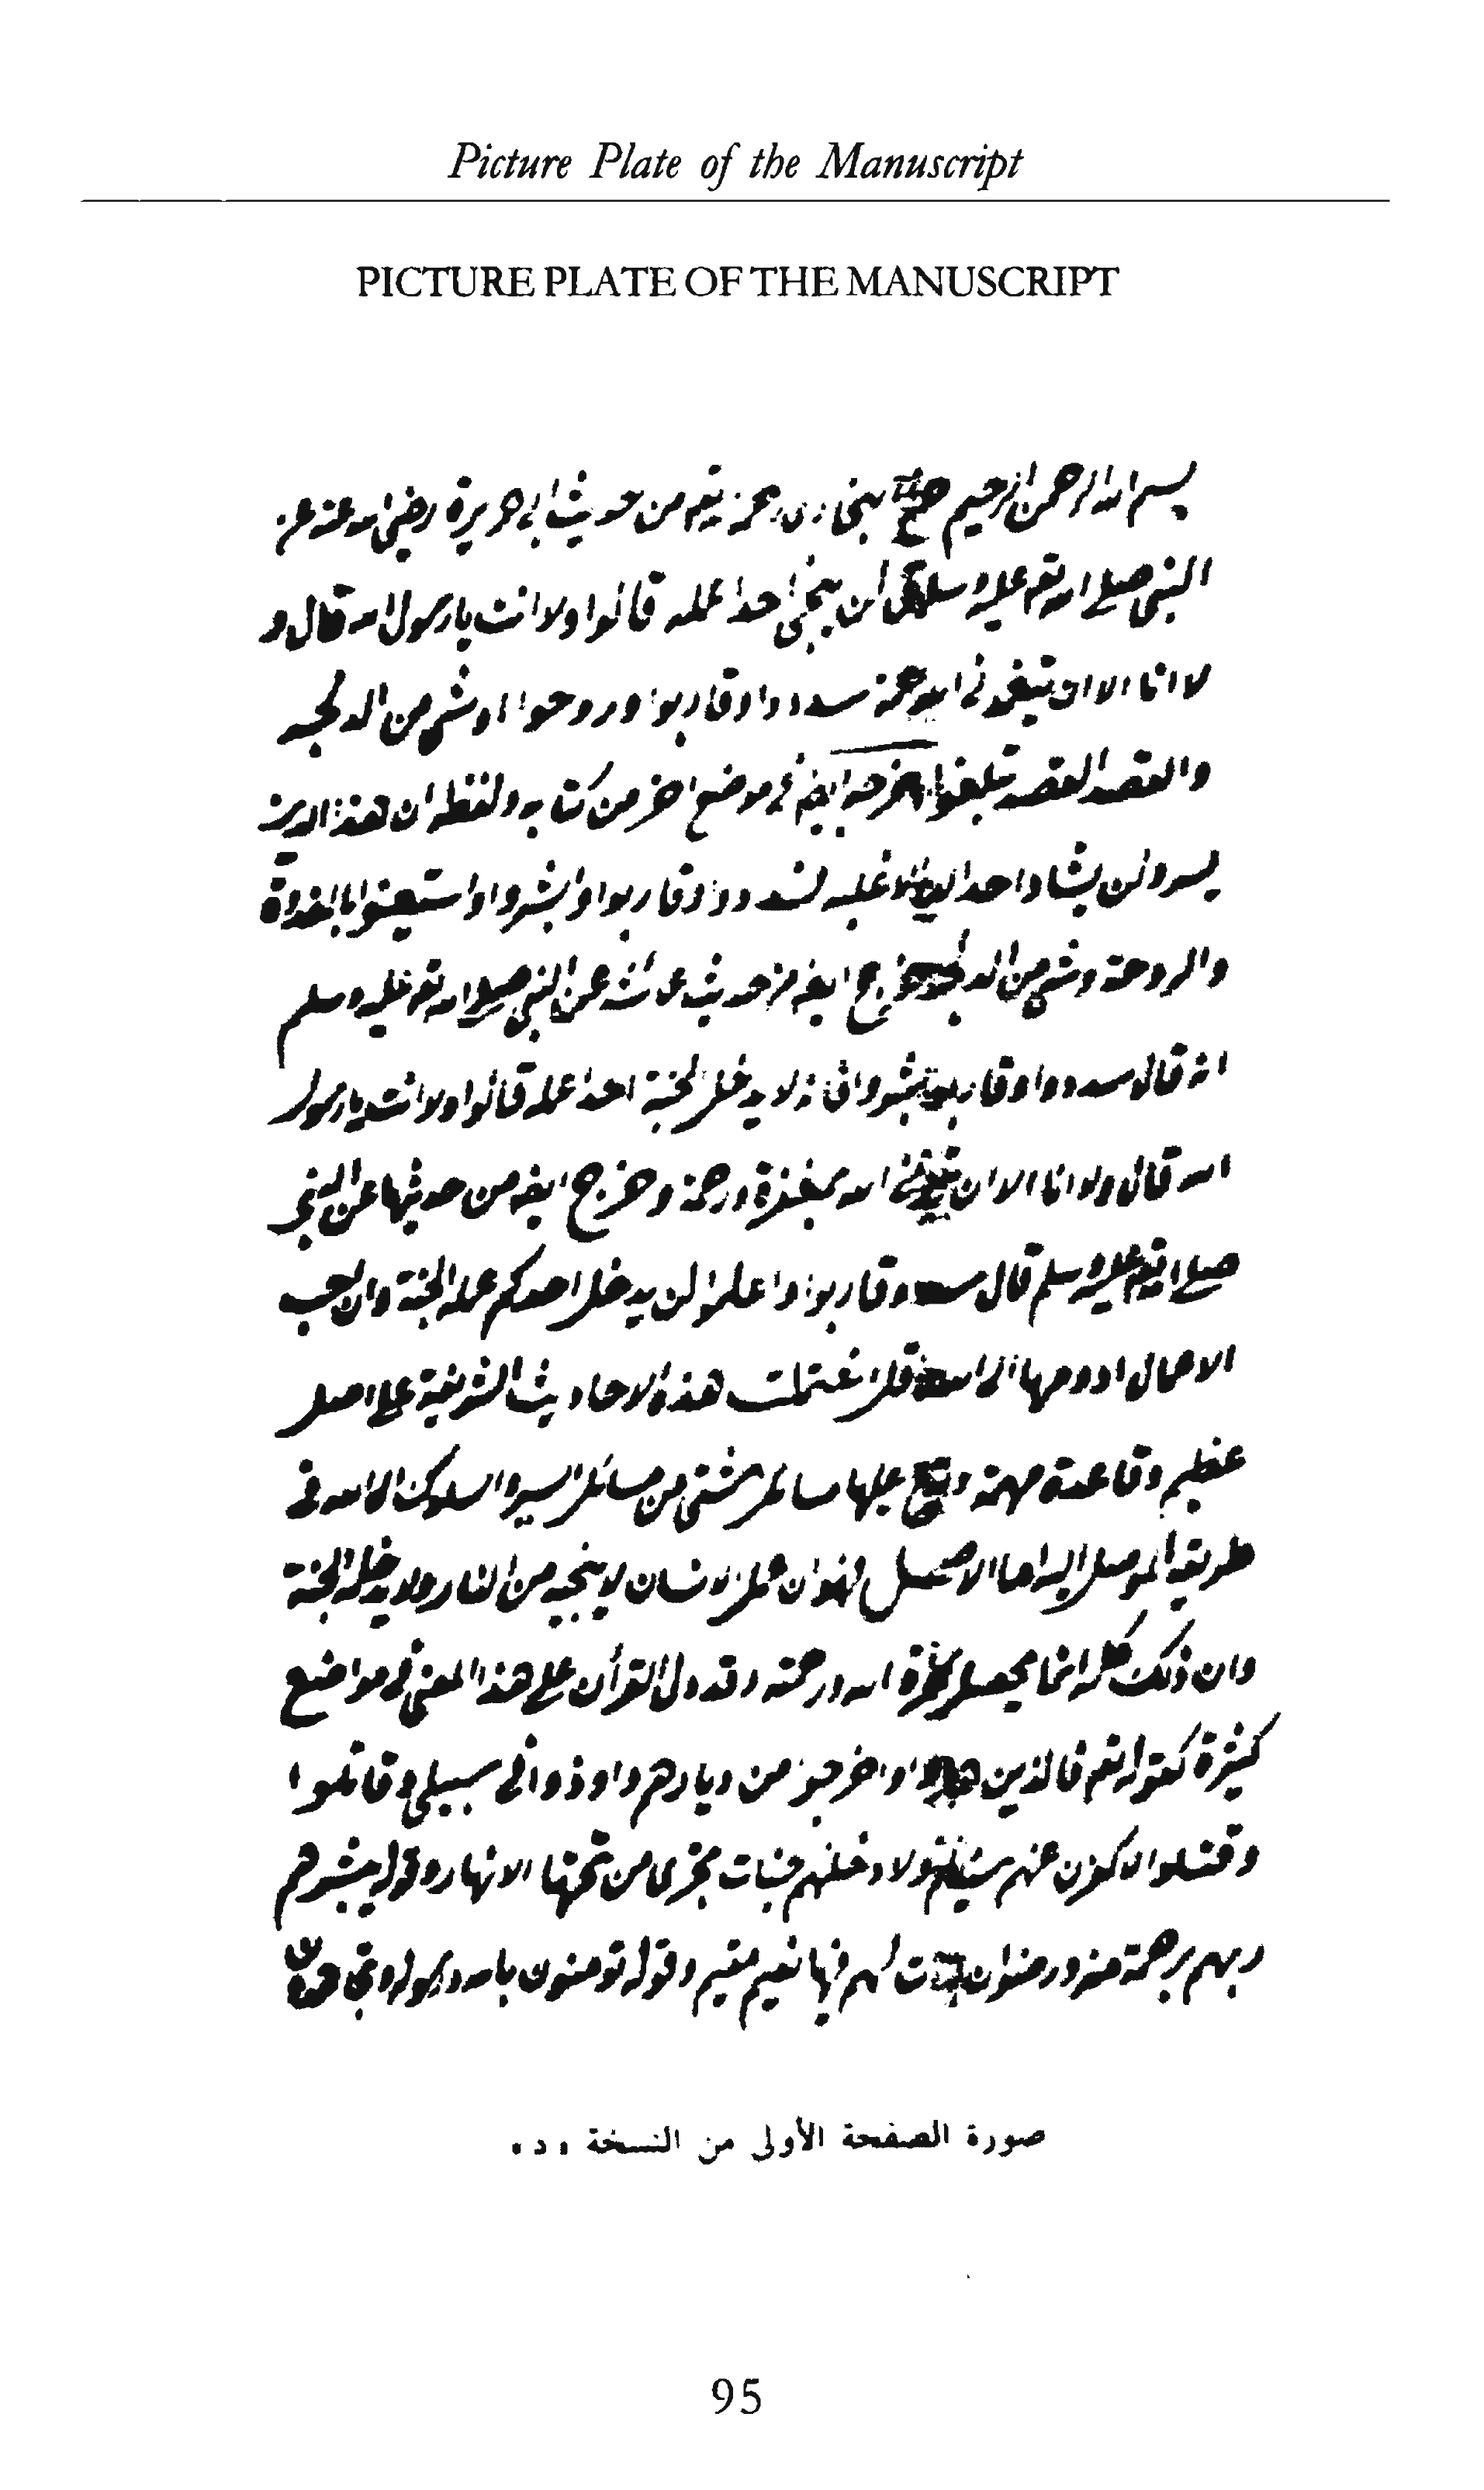 Picture Plate of the Manuscript
PICTURE PLATE OF THE MANUSCRIPT
بسم الله الرحمن الرحيم من حديث ابي هريرة رضي الله عنه عن
النبي صلى الله عليه وسلم لن ينجي احدا عمله قالوا ولا انت يا رسول الله قال و
لا انا الا ان الله سددوا وقاربوا وروحوا وشي من الدلجه
والقصد القصد تبلغوا في موضع اخر من كتابه ولفظه ان هذا الدين
يسر ولن يشاد احد الا غلبه فسددوا وقاربوا وابشروا واستعينوا بالغدوة
والروحة وشي من الدلجه ايضا من حديث عائشة عن النبي صلى الله عليه وسلم
انه قال سددوا وقاربوا وابشروا فانه لا يدخل الجنة احدا عمله قالوا ولا انت يا رسول
الله قال ولا انا الا ان الله بمغفرة ورحمة وخرج ايضا من حديثها عن النبي
صلى الله عليه وسلم قال سددوا وقاربوا واعلموا ان لن يدخل احدكم عمله الجنة وان احب
الاعمال ادومها الى الله اشتملت هذه الاحاديث الشريفة على اصل
عظيم وقاعدة مهمة عليها مسائل شتى من مسائل السير والسلوك الى الله في
طريقه الموصل اليه اما الاصل فهو ان عمل الانسان لا ينجيه من النار ولا يدخله الجنة
وان ذلك كله انما يحصل بمغفرة الله ورحمته وقد دل القرآن على هذا المعنى في مواضع
كثيرة كقوله تعم فالذين هاجروا واخرجوا من ديارهم واوذوا في سبيلي وقاتلوا
وقتلوا لاكفرن عنهم سيئاتهم ولادخلنهم جنات تجري من تحتها الانهار وقوله يبشرهم
ربهم برحمة منه ورضوان وجنات لهم فيها نعيم مقيم وقوله تؤمنون بالله ورسوله
صورة الصفحة الأولى من النسخة « د »
95